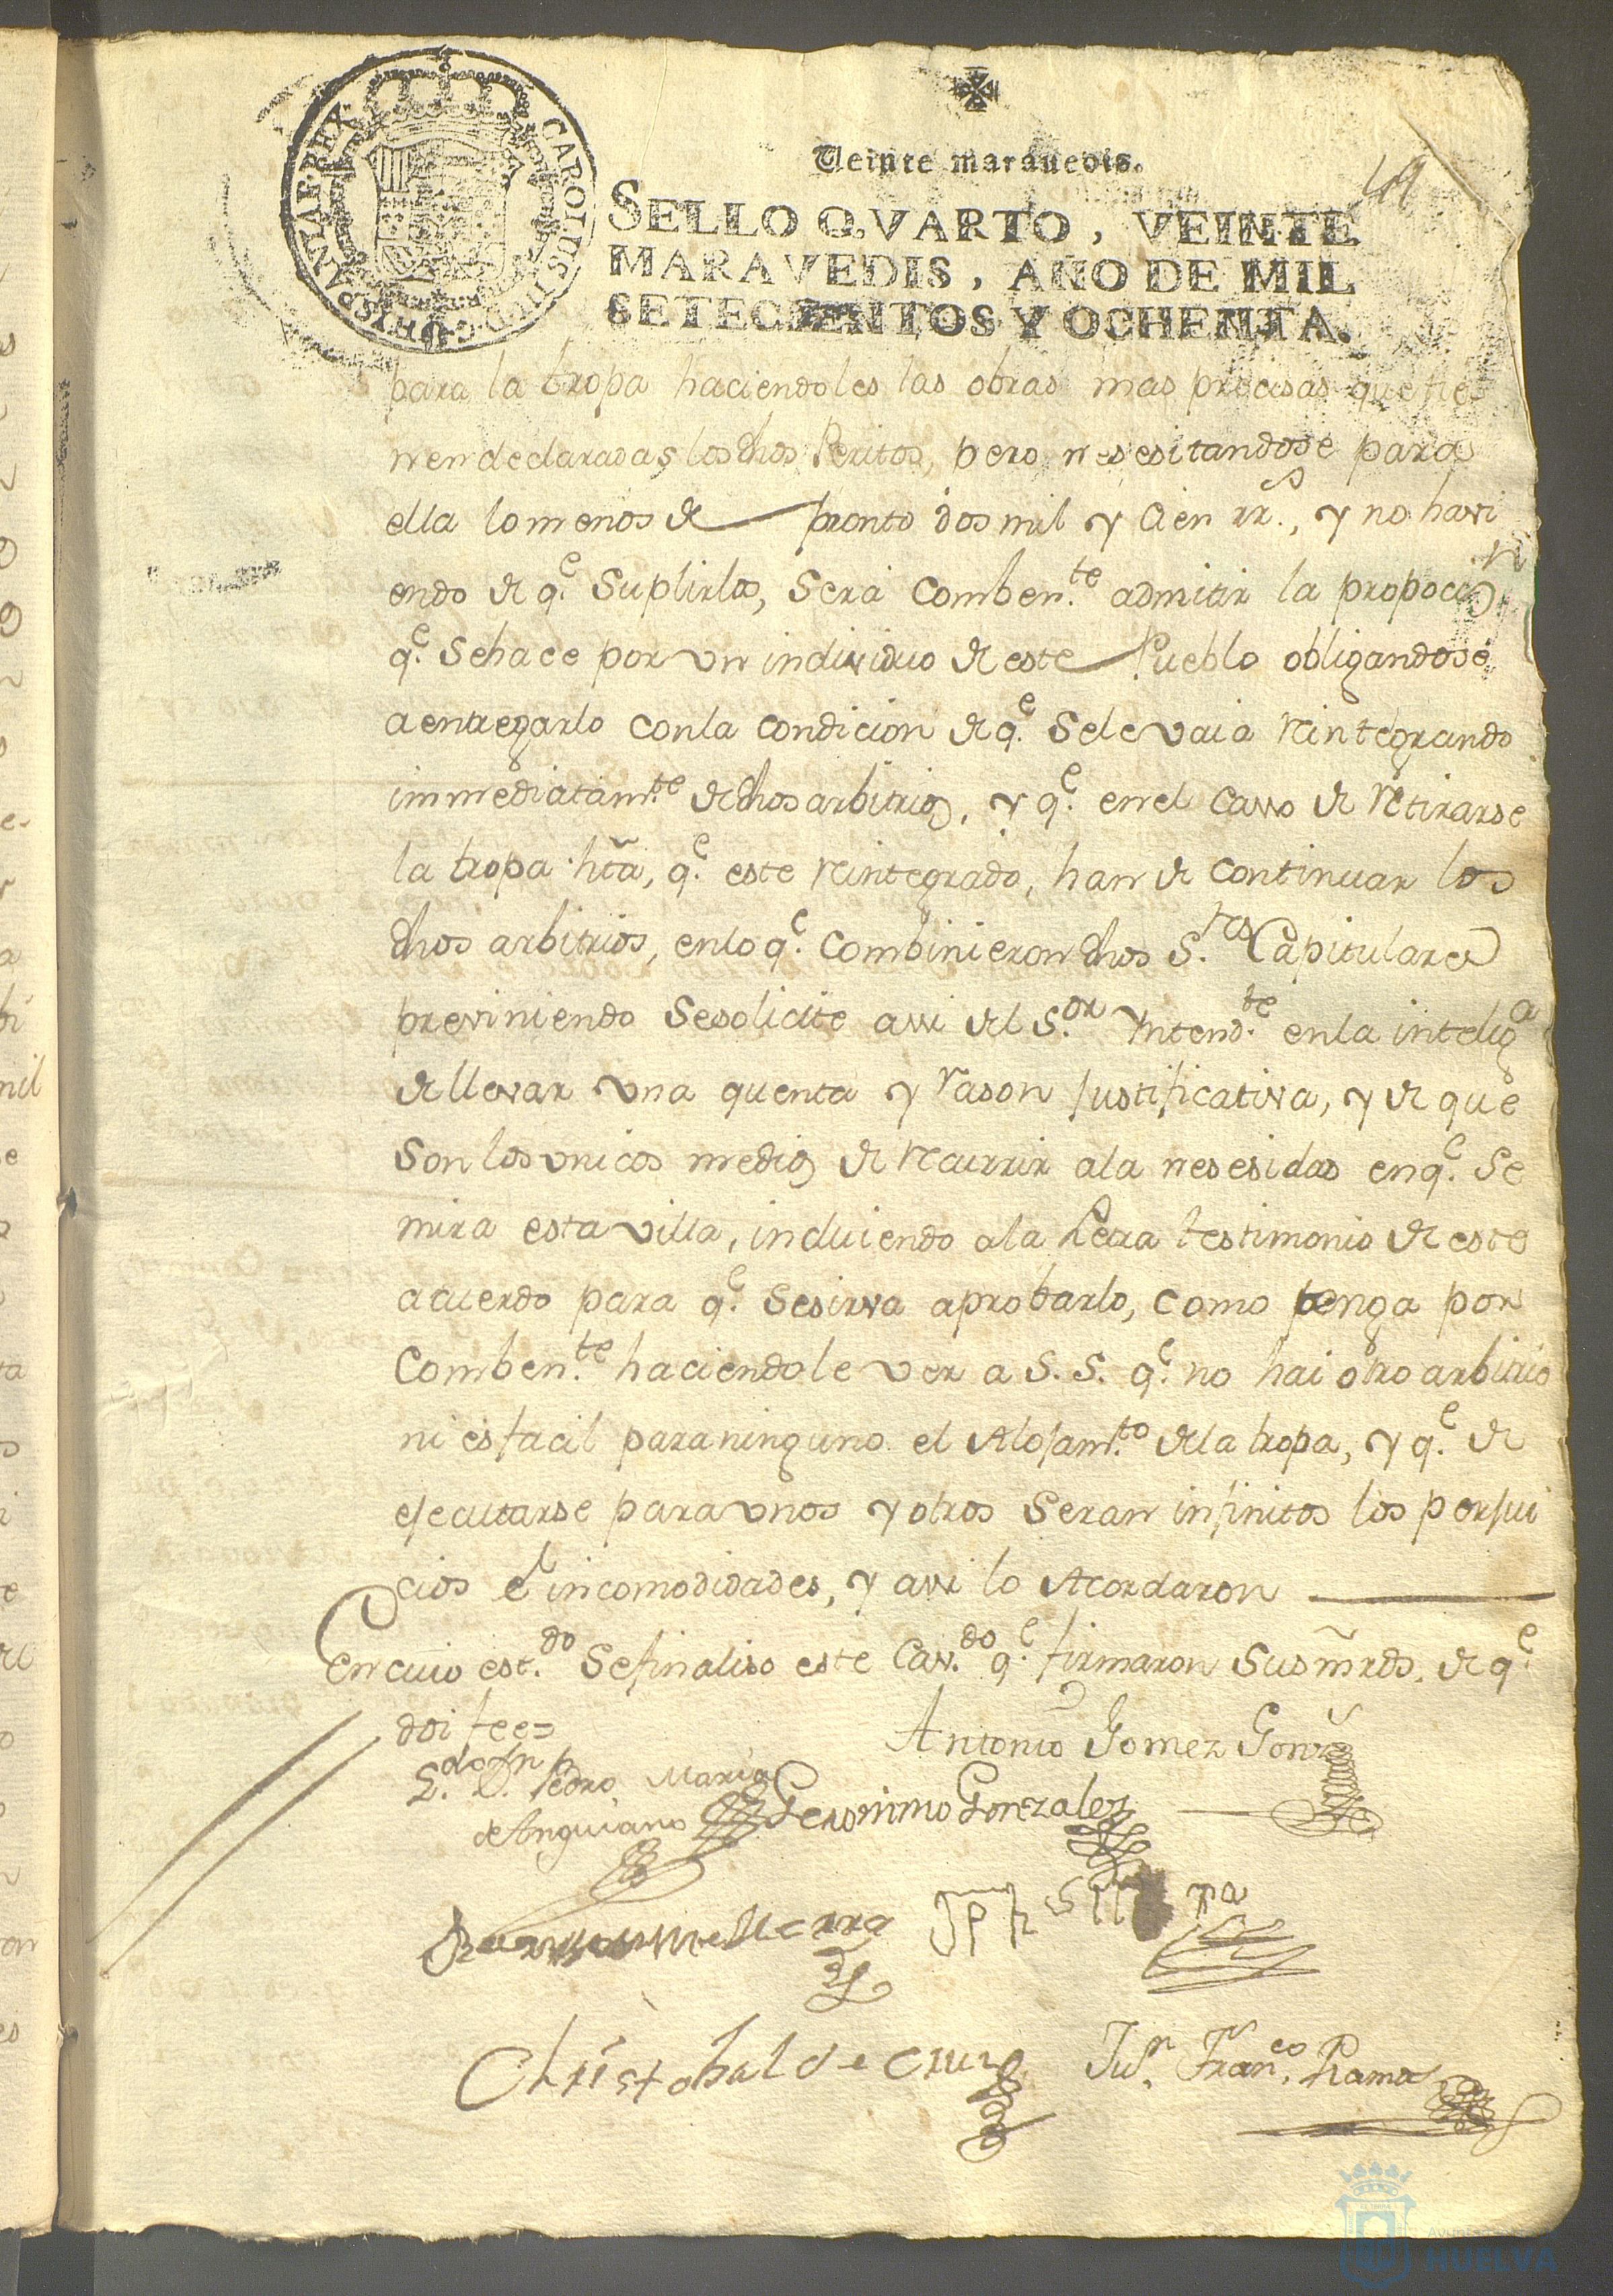 CAROLUS III D G HISPANIAR REX
Veinte maravedis.
41
SELLO QVARTO, VEINTE
MARAVEDIS, AÑO DE MIL
SETECIENTOS Y OCHENTA.
para la tropa haciendoles las obras mas precisas que tie-
nen declaradas los dhos Peritos, pero nesesitandose para
ella lo menos de pronto dos mil y Cien rrs., y no havi
endo de qe. Suplirlos, Será Comben.te admitir la propoccin
qe. Sehace por vn individuo de este Pueblo obligandose
a entregarlo con la condicion de qe. Sele vaia reintegrando
immediatam.te de dhos arbitrios, y qe. en el Casso de retirarse
la tropa hta, qe. este reintegrado, han de continuar los
dhos arbitrios, en lo qe. Combinieron dhos S.res Capitulares
previniendo Sesolicite assi del S.or Yntend.te en la intelig.a
de llevar vna quenta y rason Justificativa, y de que
Son los vnicos medios de recurrir a la nesesidad en qe. Se
mira esta villa, incluiendo a la Letra testimonio de este
acuerdo para qe. Sesirva aprobarlo, como tenga por
Comben.te haciendole ver a S. S. qe. no hai otro arbitrio
ni es facil para ninguno el Alojam.to de la tropa, y qe. de
ejecutarse para vnos y otros Seran infinitos los perjui
cios e incomodidades, y assi lo Acordaron
En cuio est.do Sefinaliso este Cav.do qe. firmaron Sus mrds. de qe.
doi fee=
Antonio Gomez Gonz
L.do Dn Pedro Maria
de Anguiano
Geronimo Gonzalez
Christobal de Cruz
Jun. Fran.co Ramos
HUELVA